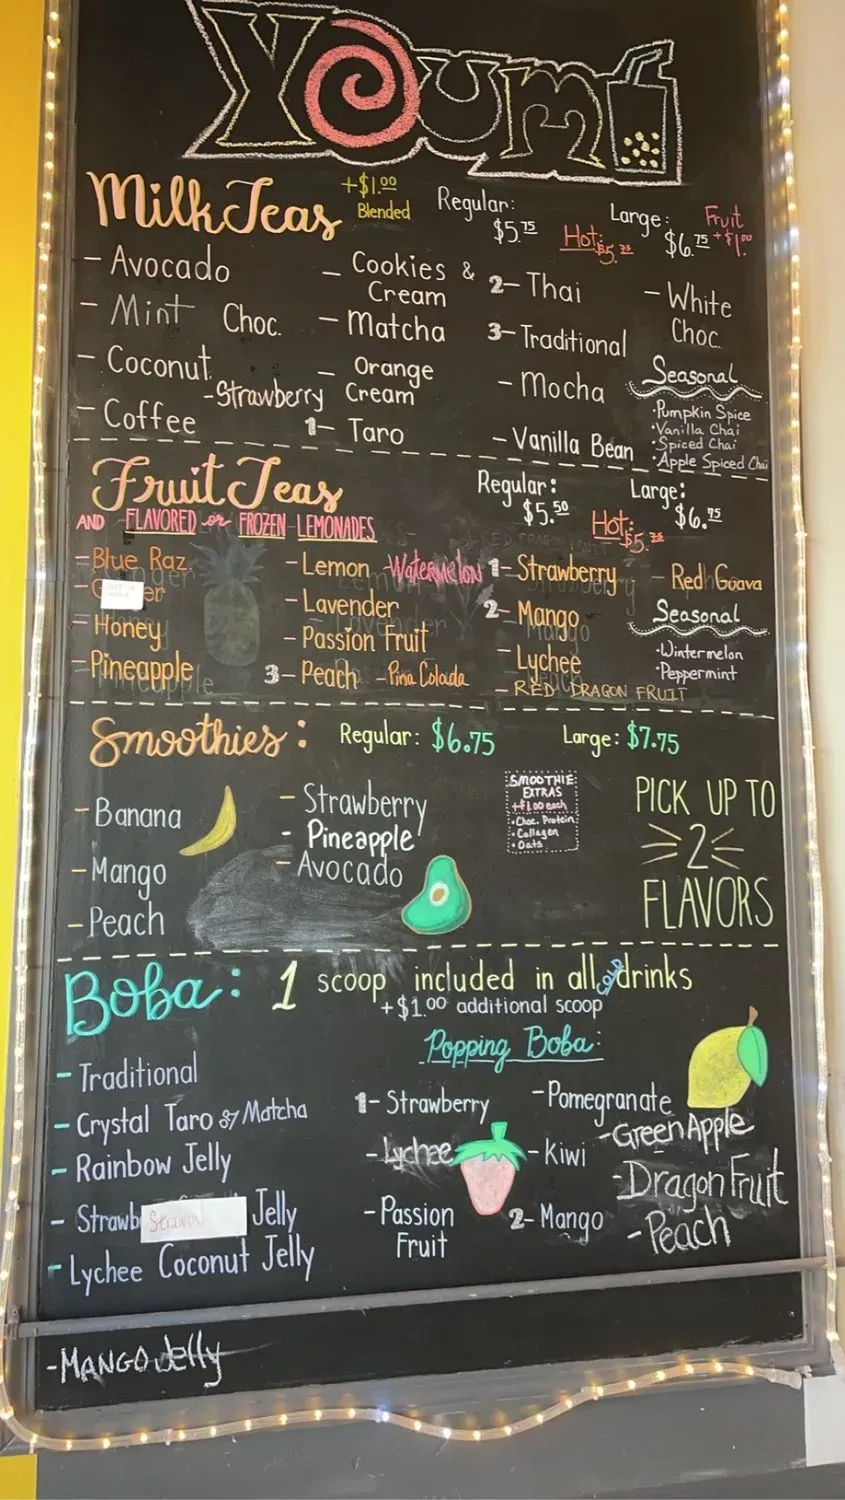 Youmi
Milk Teas
+$1.00
Blended
Regular:
$5.75
Hot: $5.75
Large:
$6.75
Fruit
+$1.00
- Avocado
- Mint Choc.
- Coconut
- Strawberry
- Coffee
- Cookies &
Cream
- Matcha
- Orange
Cream
1- Taro
2- Thai
3- Traditional
- Mocha
- Vanilla Bean
- White
Choc.
Seasonal
·Pumpkin Spice
·Vanilla Chai
·Spiced Chai
·Apple Spiced Chai
Fruit Teas
AND FLAVORED or FROZEN LEMONADES
Regular:
$5.50
Hot: $5.75
Large:
$6.75
- Blue Raz.
- Honey
- Pineapple
- Lemon
- Watermelon
- Lavender
- Passion Fruit
3- Peach
- Pina Colada
1- Strawberry
2- Mango
- Lychee
- RED DRAGON FRUIT
- Red Guava
Seasonal
·Wintermelon
·Peppermint
Smoothies:
Regular: $6.75
Large: $7.75
- Banana
- Mango
- Peach
- Strawberry
- Pineapple
- Avocado
SMOOTHIE
EXTRAS
+$1.00 each
·Choc. Protein
·Collagen
·Oats
PICK UP TO
2
FLAVORS
Boba: 1 scoop included in all cold drinks
+$1.00 additional scoop
- Traditional
- Crystal Taro or Matcha
- Rainbow Jelly
- Strawb Jelly
- Lychee Coconut Jelly
- MANGO Jelly
Popping Boba:
1- Strawberry
- Lychee
- Passion
Fruit
- Pomegranate
- Kiwi
2- Mango
- Green Apple
- Dragon Fruit
- Peach